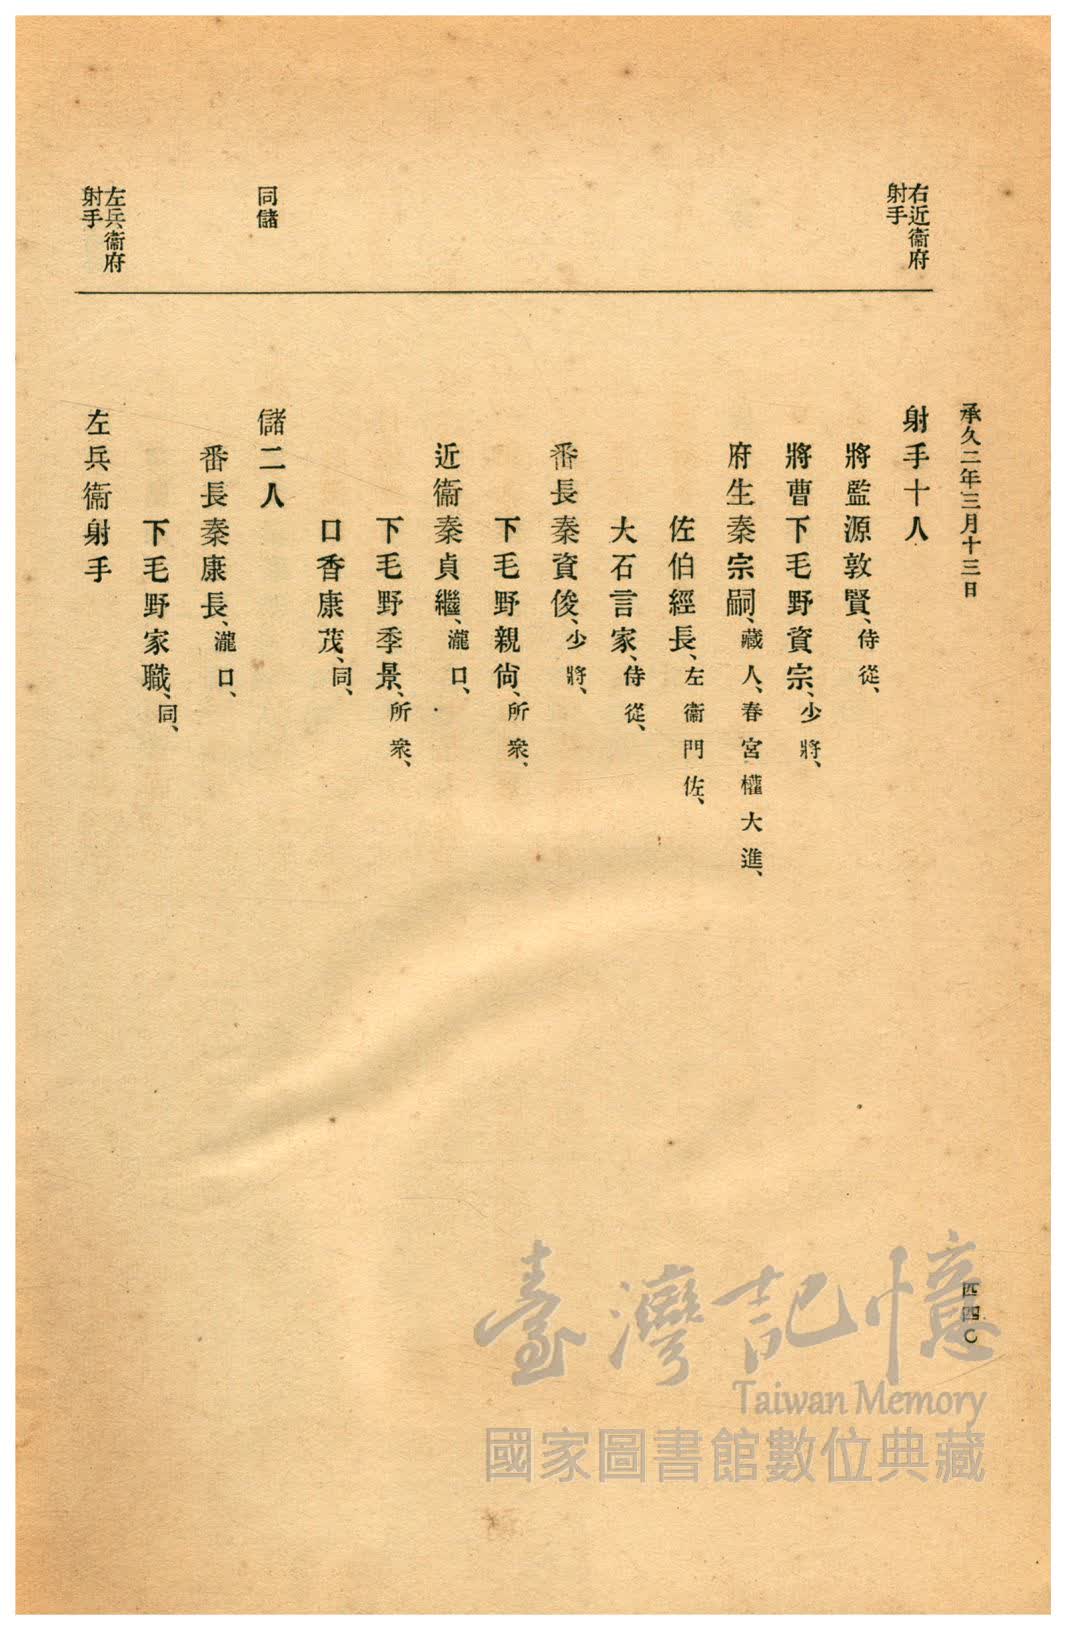 承久二年三月十三日
四四〇
右近衞府
射手
射手十人
將監源敦賢、侍從、
將曹下毛野資宗、少將、
府生秦宗嗣、藏人、春宮權大進、
佐伯經長、左衞門佐、
大石言家、侍從、
番長秦資俊、少將、
下毛野親尙、所衆、
近衞秦貞繼、瀧口、
下毛野季景、所衆、
口香康茂、同、
同儲
儲二人
番長秦康長、瀧口、
下毛野家職、同、
左兵衞府
射手
左兵衞射手
臺灣記憶
Taiwan Memory
國家圖書館數位典藏